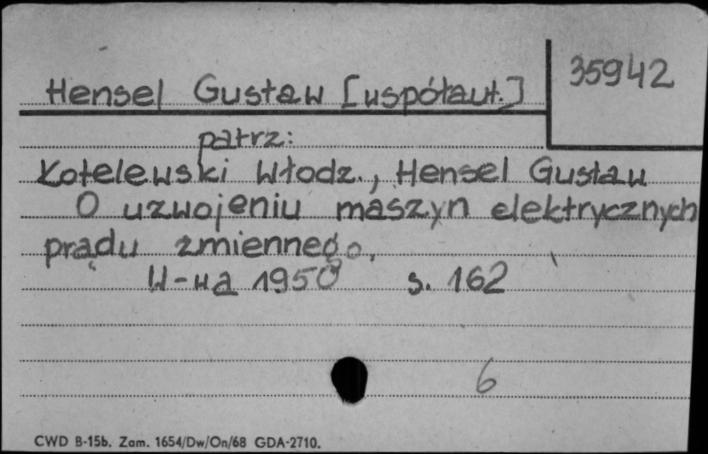 35942
Hensel Gustaw [współaut.]
patrz:
Kotelewski Włodz., Hensel Gustaw
O uzwojeniu maszyn elektrycznych
prądu zmiennego.
W-wa 1950 s. 162
6
CWD B-15b. Zam. 1654/Dw/On/68 GDA-2710.